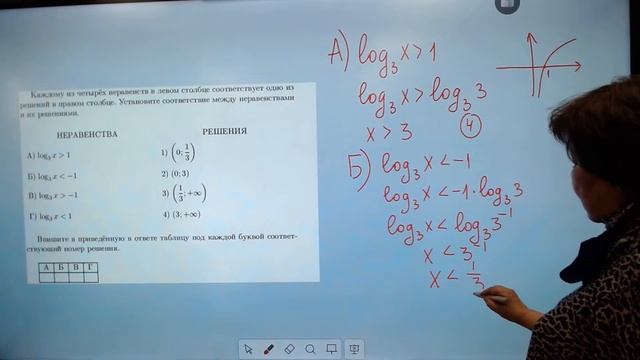 Каждому из четырёх неравенств в левом столбце соответствует одно из
решений в правом столбце. Установите соответствие между неравенствами
и их решениями.
НЕРАВЕНСТВА
РЕШЕНИЯ
А) log₃ x > 1
1) (0; 1/3)
Б) log₃ x < −1
2) (0; 3)
В) log₃ x > −1
3) (1/3; +∞)
Г) log₃ x < 1
4) (3; +∞)
Впишите в приведённую в ответе таблицу под каждой буквой соответ-
ствующий номер решения.
А Б В Г
А) log₃ x > 1
log₃ x > log₃ 3
x > 3 4
1
Б) log₃ x < −1
log₃ x < −1 · log₃ 3
log₃ x < log₃ 3⁻¹
x < 3⁻¹
x < 1/3